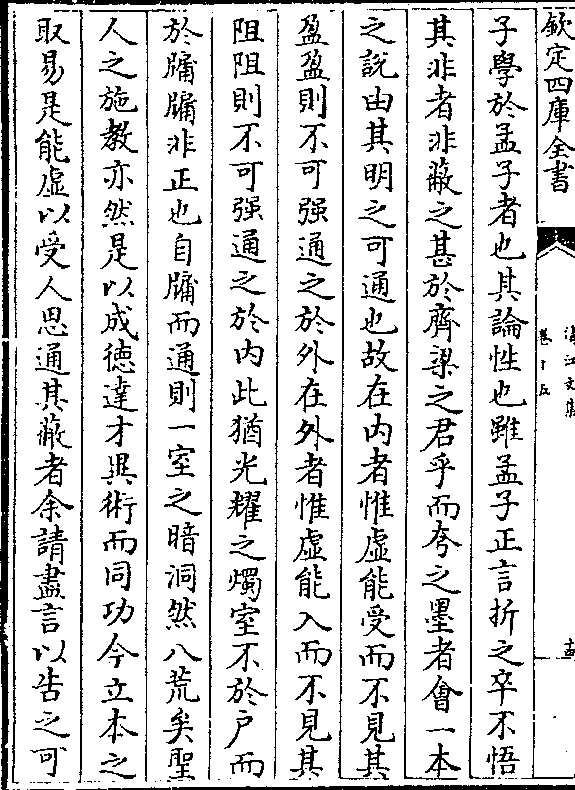 欽定四庫全書
卷十五
子學於孟子者也其論性也雖孟子正言折之卒不悟
其非者非蔽之甚於齊梁之君乎而夸之墨者會一本
之說由其明之可通也故在内者惟虛能受而不見其
盈盈則不可强通之於外在外者惟虛能入而不見其
阻阻則不可强通之於内此猶光耀之燭室不於户而
於牖牖非正也自牖而通則一室之暗洞然八荒矣聖
人之施教亦然是以成徳達才異術而同功今立本之
取易是能虛以受人思通其蔽者余請盡言以告之可